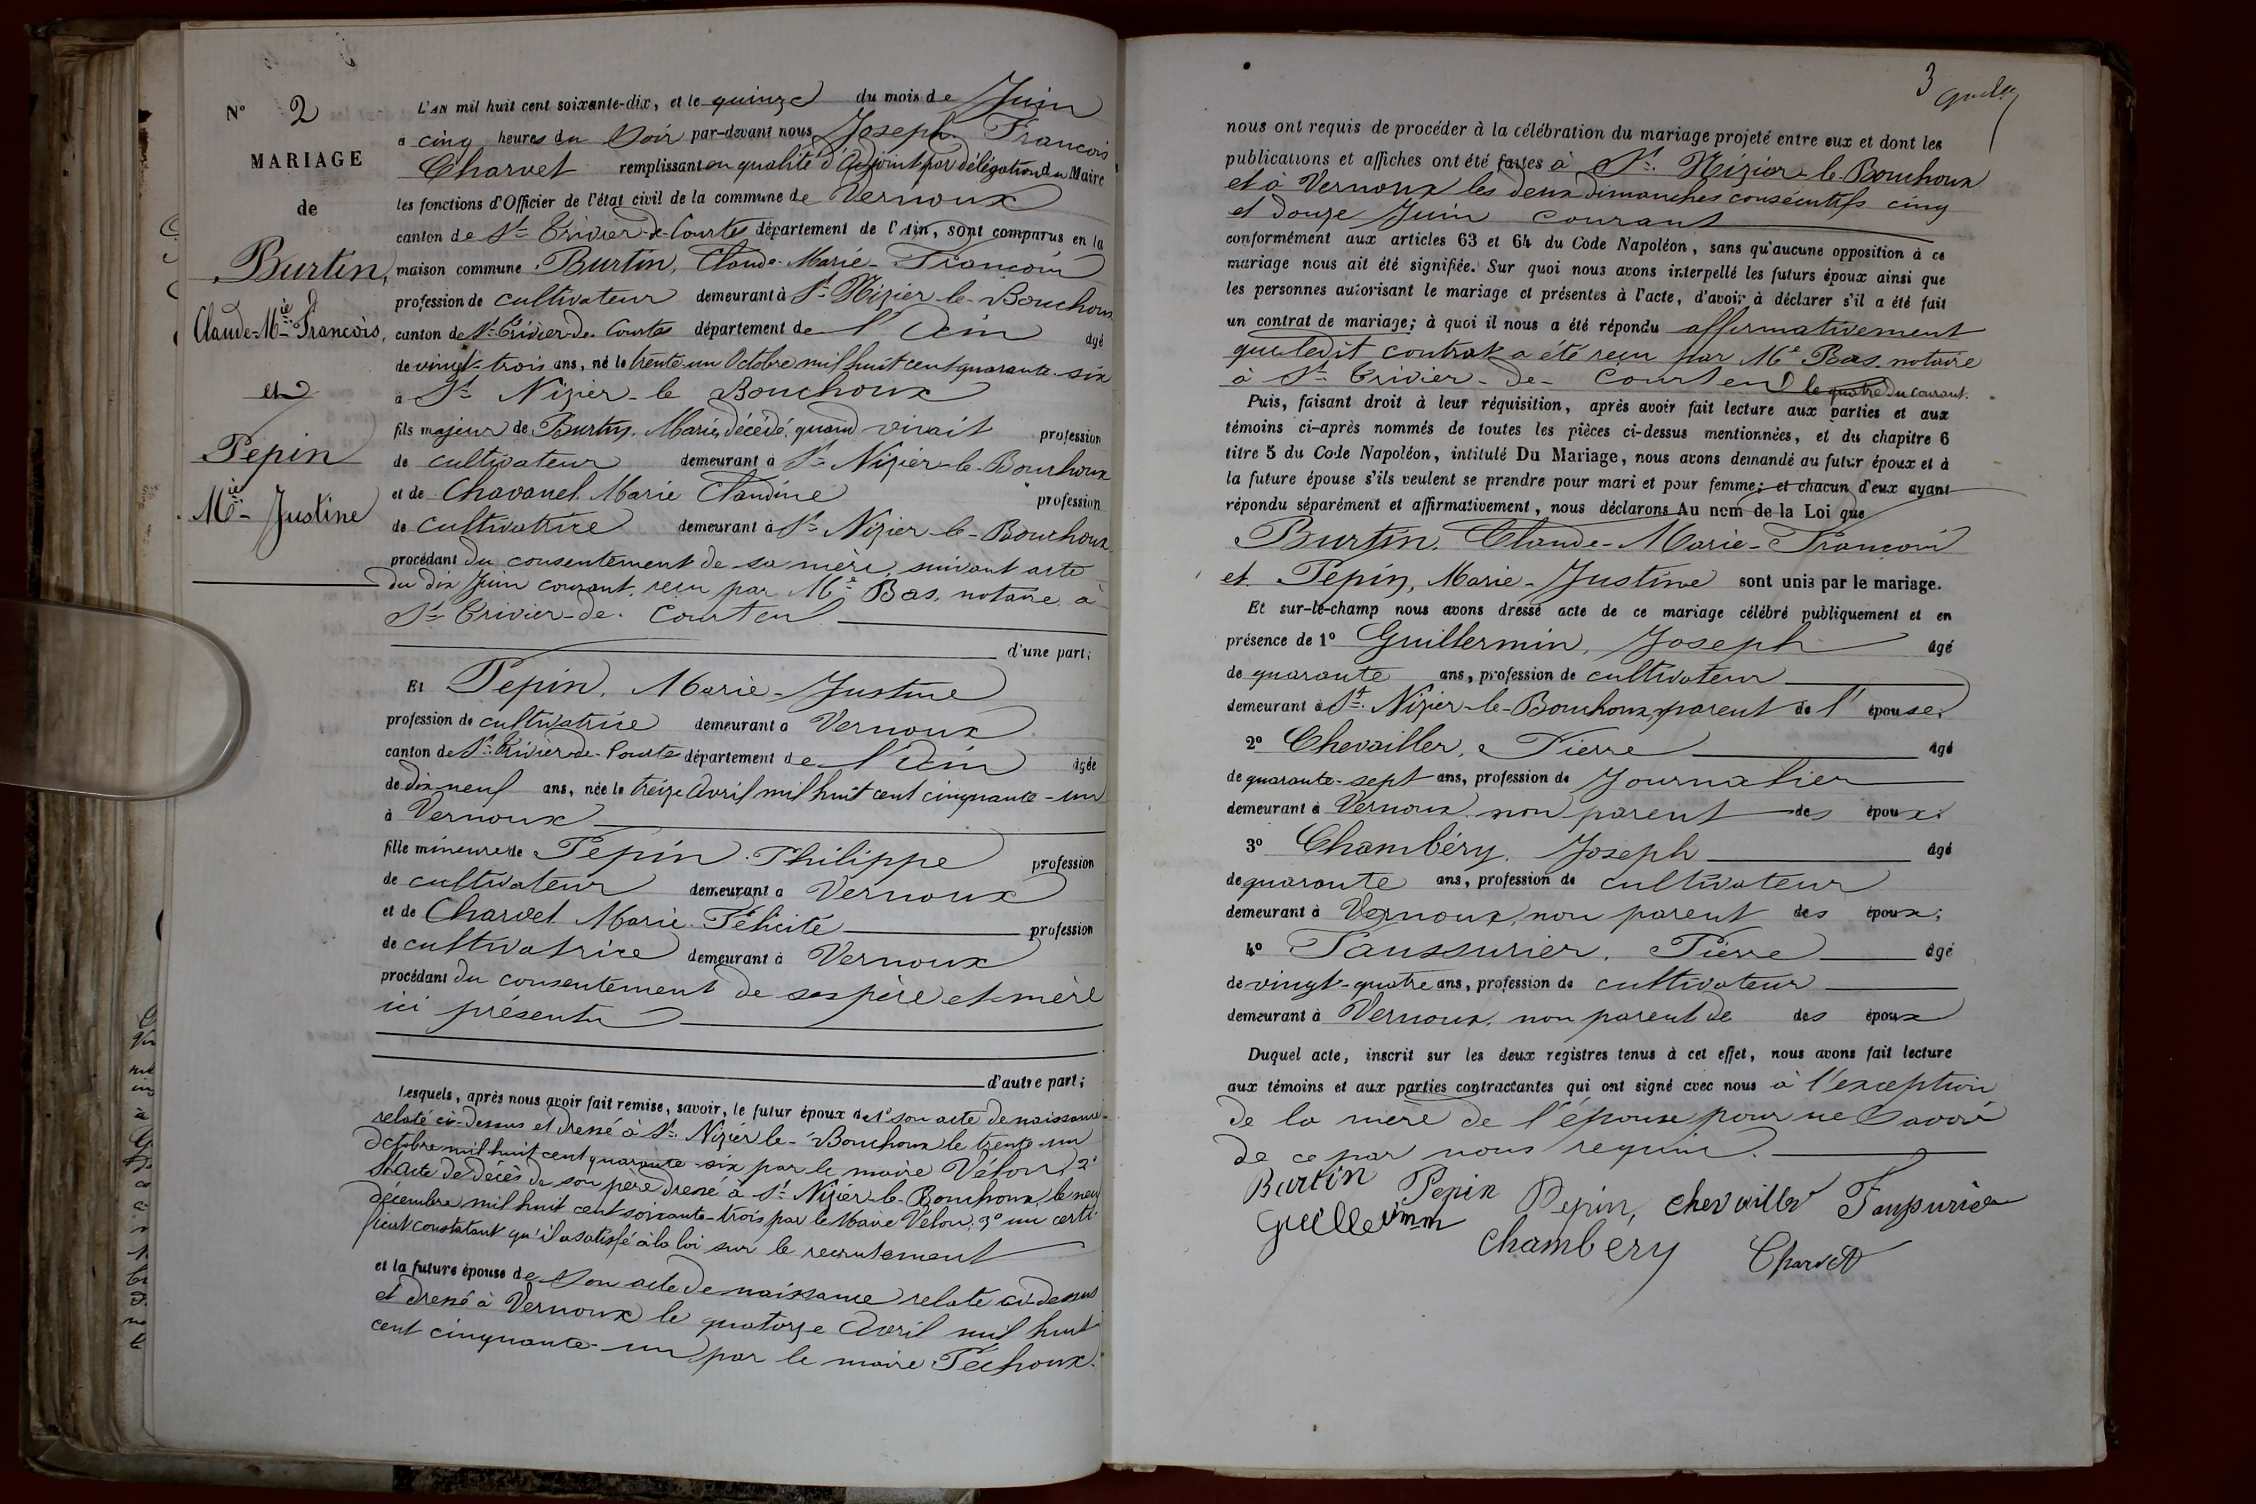 N° 2
MARIAGE
de
Burtin,
Claude-Mie François,
et
Pepin
Mie Justine
L'AN mil huit cent soixante-dix, et le quinze du mois de Juin
à cinq heures du Soir par-devant nous Joseph François
Charvet remplissant en qualité d'Adjoint par délégation du Maire
les fonctions d'Officier de l'état civil de la commune de Vernoux
canton de St Trivier-de-Courtes département de l'Ain, sont comparus en la
maison commune Burtin, Claude-Marie-François
profession de cultivateur demeurant à St Nizier-le-Bouchoux
canton de St Trivier-de-Courtes département de l'Ain âgé
de vingt-trois ans, né le trente-un Octobre mil huit cent quarante-six
à St Nizier-le Bouchoux
fils majeur de Burtin, Marie, décédé, quand vivait profession
de cultivateur demeurant à St Nizier-le-Bouchoux
et de Chavanel Marie Claudine profession
de cultivatrice demeurant à St Nizier-le-Bouchoux
procédant du consentement de sa mère, suivant acte
du dix Juin courant, reçu par Me Bas, notaire à
St Trivier-de-Courtes
d'une part;
Et Pepin, Marie-Justine
profession de cultivatrice demeurant à Vernoux
canton de St Trivier-de-Courtes département de l'Ain âgée
de dix neuf ans, née le treize Avril mil huit cent cinquante-un
à Vernoux
fille mineure de Pepin Philippe profession
de cultivateur demeurant à Vernoux
et de Charvet Marie Félicité profession
de cultivatrice demeurant à Vernoux
procédant du consentement de ses père et mère
ici présents
d'autre part;
Lesquels, après nous avoir fait remise, savoir, le futur époux de 1° son acte de naissance
relaté ci-dessus et dressé à St Nizier le-Bouchoux le trente-un
Octobre mil huit cent quarante-six par le maire Vélon, 2°
l'acte de décès de son père dressé à St Nizier-le-Bouchoux le neuf
décembre mil huit cent soixante-trois par le Maire Velon, 3° un certi-
ficat constatant qu'il a satisfé à la loi sur le recrutement
et la future épouse de Son acte de naissance relaté ci-dessus
et dressé à Vernoux le quatorze Avril mil huit
cent cinquante-un par le maire Péchoux.
3
nous ont requis de procéder à la célébration du mariage projeté entre eux et dont les
publications et affiches ont été faites à St Nizier-le-Bouchoux
et à Vernoux les deux dimanches consécutifs cinq
et douze Juin courant
conformément aux articles 63 et 64 du Code Napoléon, sans qu'aucune opposition à ce
mariage nous ait été signifiée. Sur quoi nous avons interpellé les futurs époux ainsi que
les personnes autorisant le mariage et présentes à l'acte, d'avoir à déclarer s'il a été fait
un contrat de mariage; à quoi il nous a été répondu affirmativement
que ledit contrat a été reçu par Me Bas notaire
à St Trivier-de-Courtes le quatre du courant.
Puis, faisant droit à leur réquisition, après avoir fait lecture aux parties et aux
témoins ci-après nommés de toutes les pièces ci-dessus mentionnées, et du chapitre 6
titre 5 du Code Napoléon, intitulé Du Mariage, nous avons demandé au futur époux et à
la future épouse s'ils veulent se prendre pour mari et pour femme; et chacun d'eux ayant
répondu séparément et affirmativement, nous déclarons Au nom de la Loi que
Burtin, Claude-Marie-François
et Pepin, Marie-Justine sont unis par le mariage.
Et sur-le-champ nous avons dressé acte de ce mariage célébré publiquement et en
présence de 1° Guillermin, Joseph âgé
de quarante ans, profession de cultivateur
demeurant à St Nizier-le-Bouchoux, parent de l'épouse;
2° Chevailler, Pierre âgé
de quarante-sept ans, profession de Journalier
demeurant à Vernoux, non parent des époux;
3° Chambéry, Joseph âgé
de quarante ans, profession de cultivateur
demeurant à Vernoux, non parent des époux;
4° Faussurier, Pierre âgé
de vingt-quatre ans, profession de cultivateur
demeurant à Vernoux, non parent de des époux
Duquel acte, inscrit sur les deux registres tenus à cet effet, nous avons fait lecture
aux témoins et aux parties contractantes qui ont signé avec nous à l'exception
de la mère de l'épouse pour ne Savoir
de ce par nous requis.
Burtin Pepin Pepin, chevailler Faussurier
Guillermin chambery Charvet